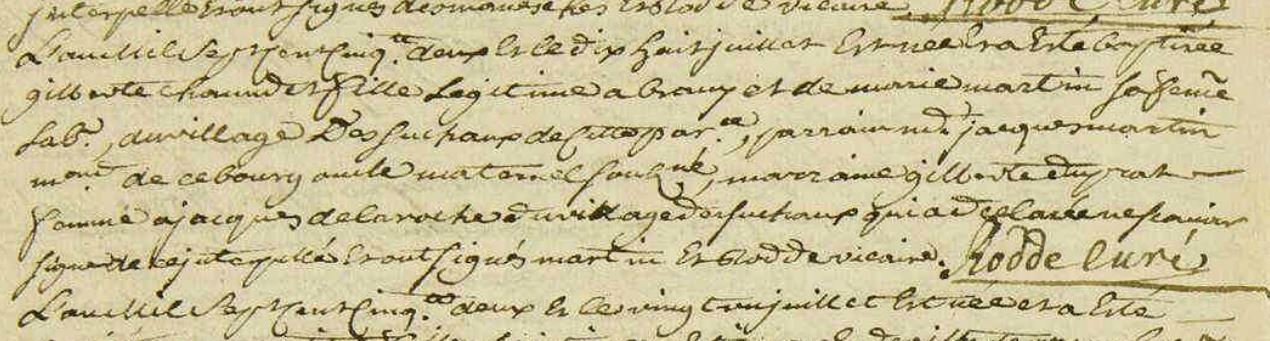 interpellé et ont signés desmaneches et Rodde vicaire. Rodde Curé
L'an Mil Sept Cent Cinq.te deux et le dix huit juillet Est née Et a Esté baptisée
gilberte chaundet fille Legitime a braux et de marie martin sa feme
Lab.r, du village Des suchaux de cette par.ce, parrain m.d jacques martin
m.and de ce bourg oncle maternel soug.né, marraine gilberte duprat
femme a jacques delaroche du village des suchaux qui a declaré ne scavoir
signer de ce interpellée Et ont Signés martin Et Rodde vicaire. Rodde Curé
L'an Mil Sept Cent Cinq.te deux Et le vingt un juillet Est née et a Esté